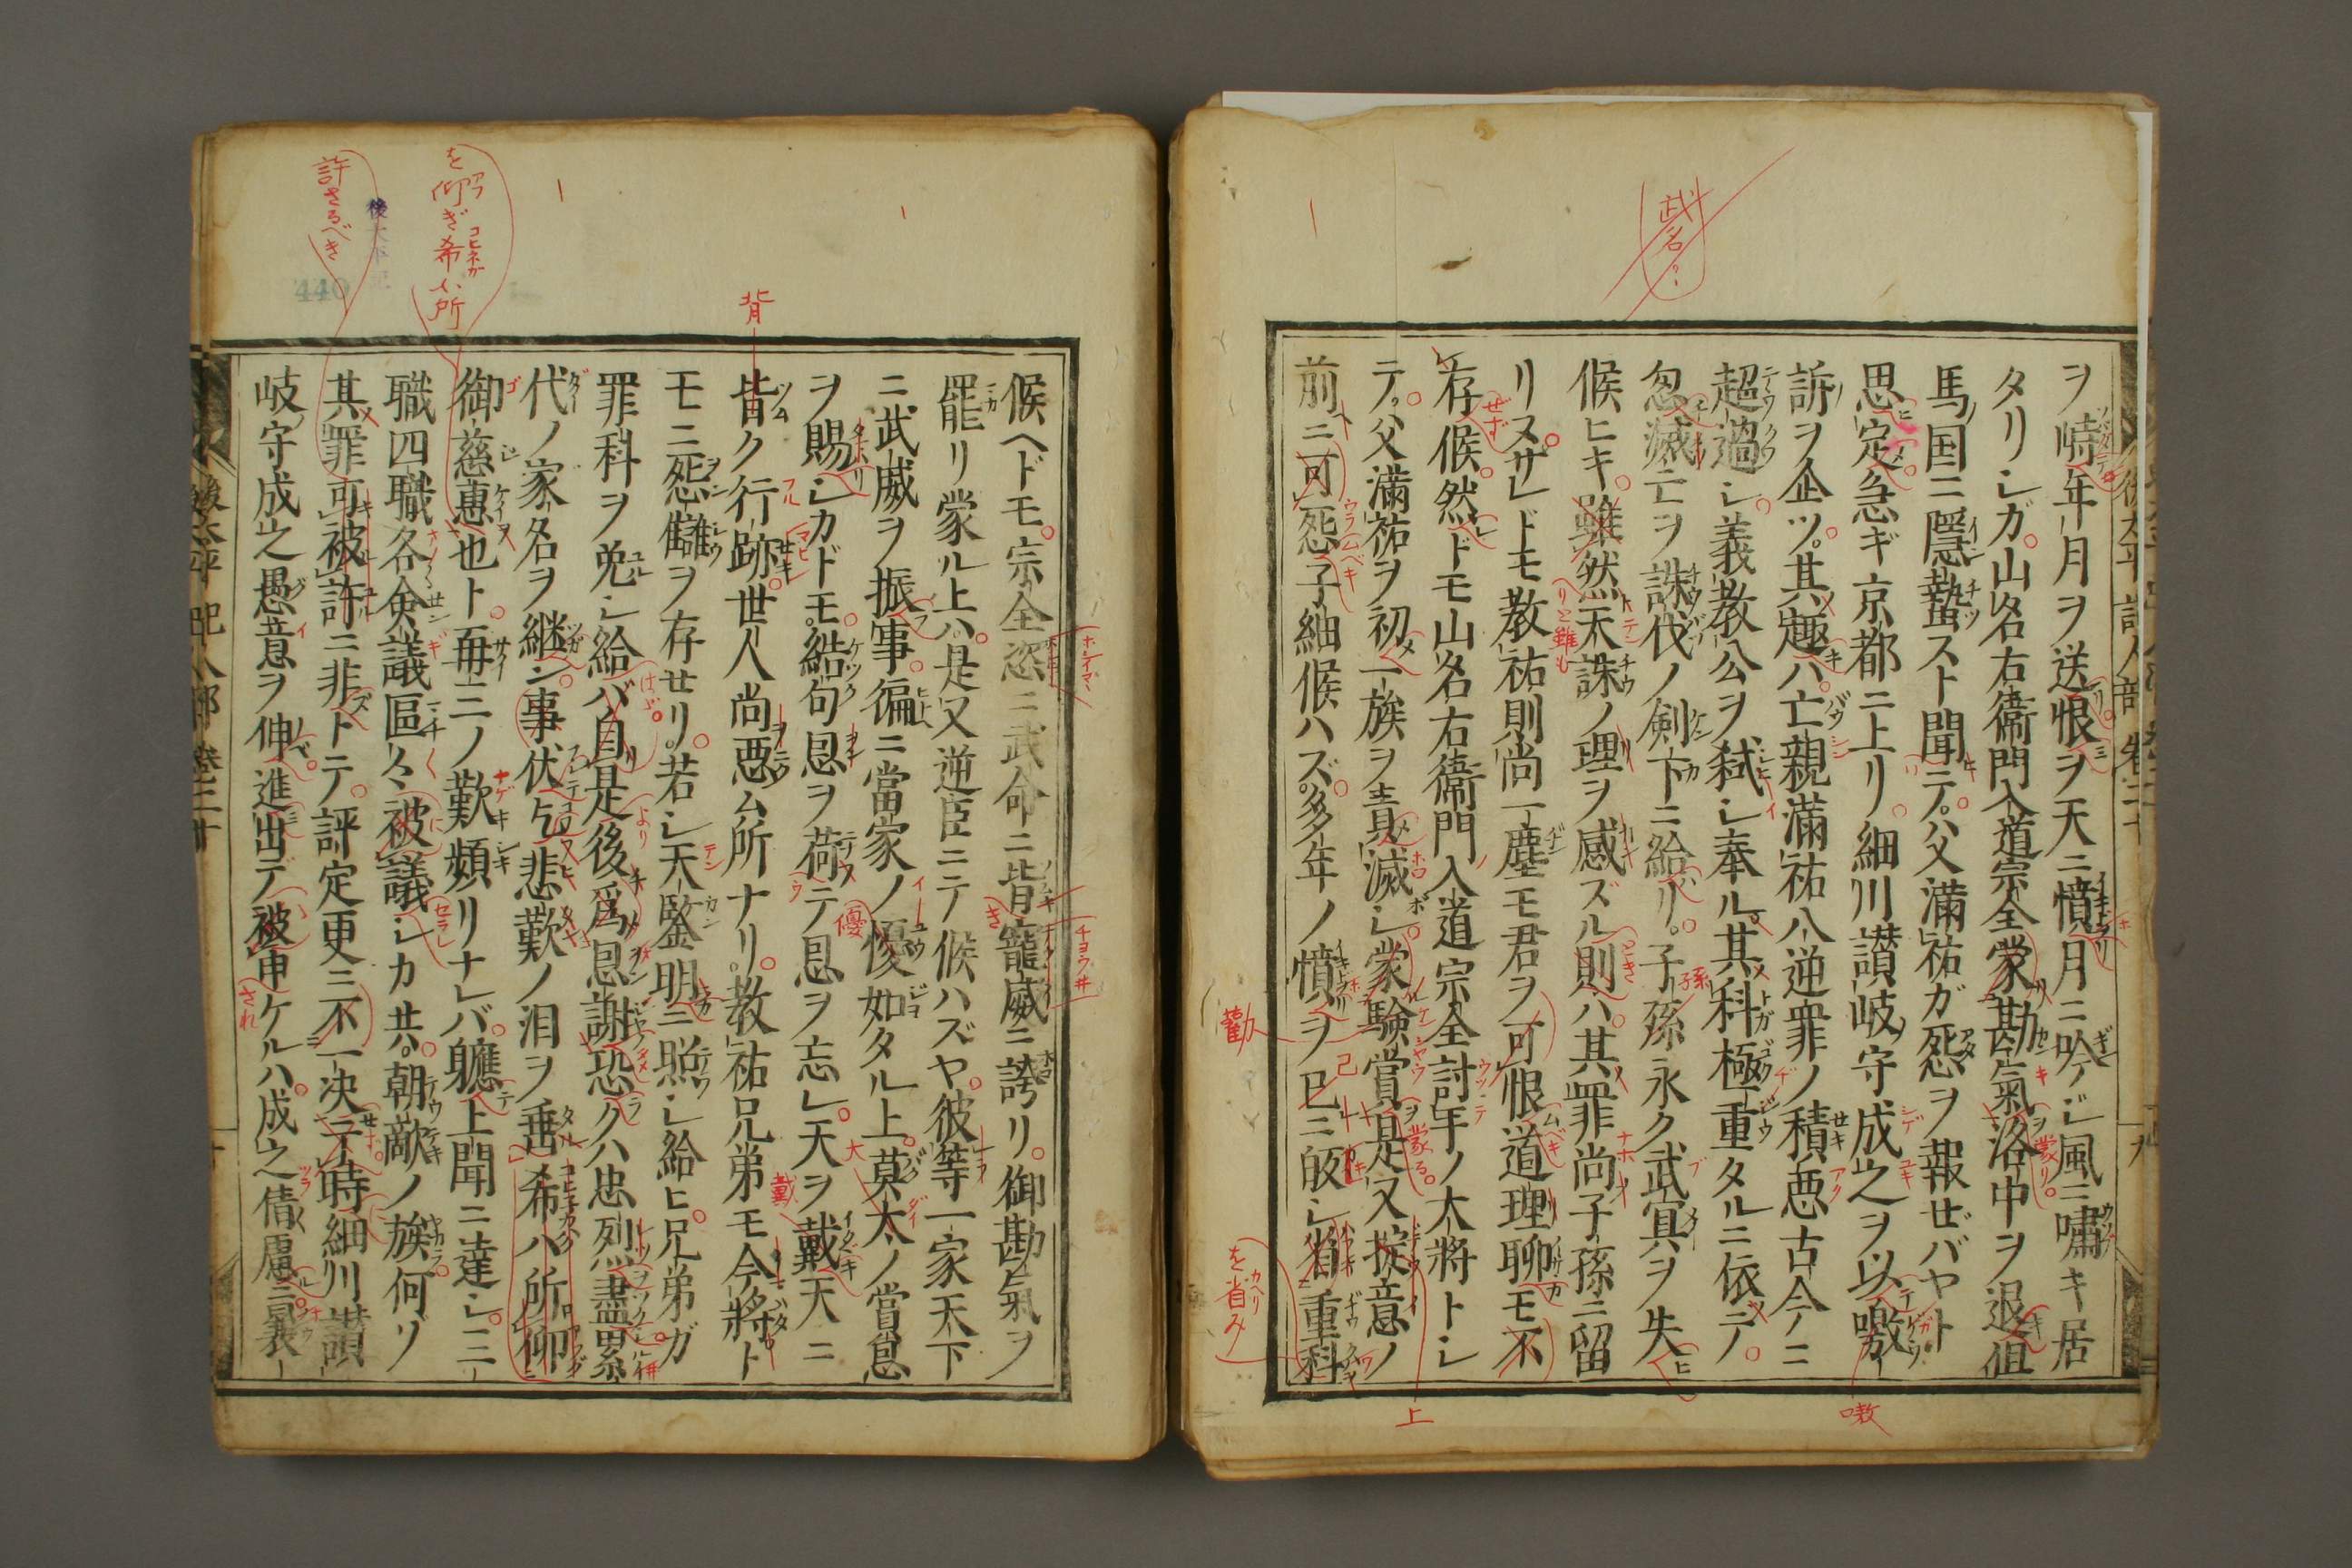 ヲ峙年月ヲ送恨ヲ天ニ憤月ニ吟ジ風ニ嘯キ居
タリシガ山名右衛門入道宗全蒙勘氣洛中ヲ退但
馬国ニ隠蟄スト聞テ父満祐ガ怨ヲ報ゼバヤト
思定急ギ京都ニ上リ細川讃岐守成之ヲ以噭
訴ヲ企ツ其趣ハ亡親満祐八逆罪ノ積悪古今ニ
超過シ義教公ヲ弑シ奉ル其科極重タルニ依テ
忽滅亡ヲ誅伐ノ剣下ニ給リ子孫永ク武冥ヲ失
候ヒキ雖然天誅ノ理ヲ感ズル則ハ其罪尚子孫ニ留
リヌザレドモ教祐則尚一塵モ君ヲ可恨道理聊モ不
存候然ドモ山名右衛門入道宗全討手ノ大将トシ
テ父満祐ヲ初一族ヲ責滅シ蒙験賞是又掟意ノ
前ニ可怨子細候ハズ多年ノ憤ヲ已ニ皈シ省重科
候ヘドモ宗全恣ニ武命ニ背寵威ニ誇リ御勘氣ヲ
罷リ蒙ル上ハ是又逆臣ニテ候ハズヤ彼等一家天下
ニ武威ヲ振事偏ニ當家ノ優如タル上莫太ノ賞恩
ヲ賜シカドモ結句恩ヲ荷テ恩ヲ忘レ天ヲ戴天ニ
皆ク行跡世人尚悪ム所ナリ教祐兄弟モ今将ト
モニ怨讎ヲ存セリ若シ天鑒明ニ照シ給ヒ兄弟ガ
罪科ヲ免シ給バ自是後為恩謝恐クハ忠烈盡累
代ノ家名ヲ継ン事伏乞悲歎ノ泪ヲ垂希ハ所仰
御慈恵也ト再三ノ歎頻リナレバ軈上聞ニ達シ三
職四職各僉議區々被議シカ共朝敵ノ族何ゾ
其罪可被許ニ非トテ評定更ニ不一决于時細川讃
岐守成之愚意ヲ伸進出デ被申ケルハ成之倩慮ニ曩
後太平記人部卷三十
後太平記人部卷三十
許さるべき
を仰ぎ希ふ所
背
武名?
勸
を省み
上
噭
優
440
後太平記